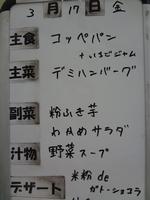 3月17日 金
主食 コッペパン
+いちごジャム
主菜 デミハンバーグ
副菜 粉ふき芋
わかめサラダ
汁物 野菜スープ
デザート 米粉de
ガトーショコラ